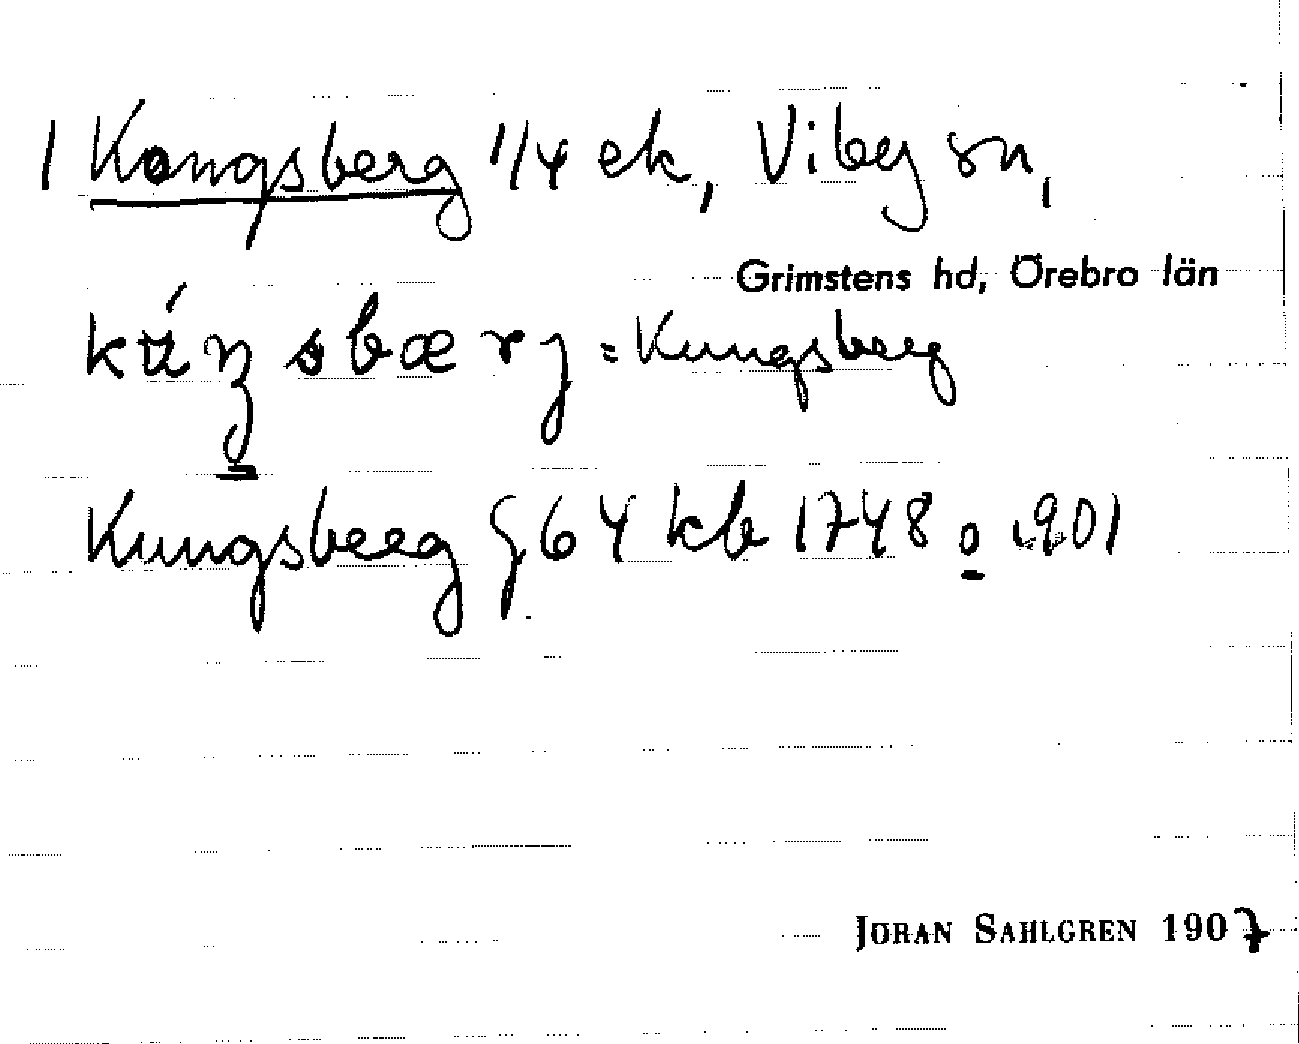 1 Kongsberg 1/4 ek, Viby sn,
Grimstens hd, Örebro län
= Kungsberg
Kungsberg § 64 kb 1748 o 1901
JÖRAN SAHLGREN 1907